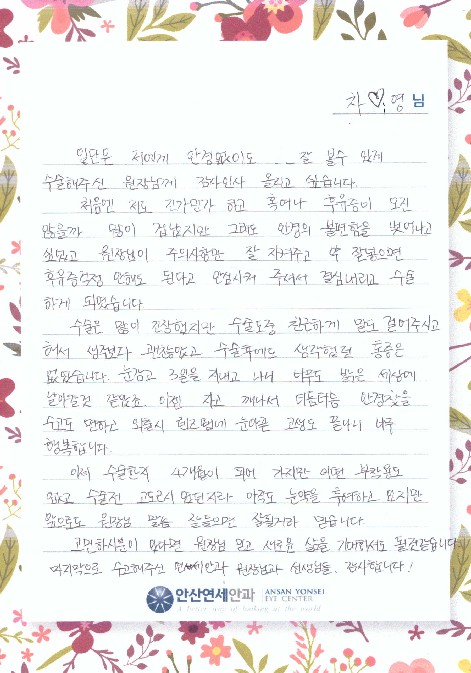 차♡영 님
일단은 저에게 안경없이도 .. 잘 볼수 있게
수술해주신 원장님께 감사인사 올리고 싶습니다.
처음엔 저도 긴가민가 하고 혹여나 후유증이 오진
않을까 많이 겁났지만 그래도 안경의 불편함을 벗어나고
싶었고 원장님이 주의사항만 잘 지켜주고 약 잘넣으면
후유증걱정 안해도 된다고 안심시켜 주셔서 결심내리고 수술
하게 되었습니다
수술은 많이 긴장했지만 수술도중 친근하게 말도 걸어주시고
해서 생각보다 괜찮았고 수술후에도 생각했던 통증은
없었습니다. 눈감고 3일을 지내고 나니 너무도 밝은 세상에
날아갈것 같았죠. 이젠 자고 깨나서 더듬더듬 안경찾을
수고도 면하고 외출시 렌즈땜에 눈아픈 고생도 끝나니 너무
행복합니다.
이제 수술한지 4개월이 되어 가지만 어떤 부작용도
없고 수술전 고도근시 였던지라 아직도 눈약을 투여하고 있지만
앞으로도 원장님 말씀 잘들으면 잘될거라 믿습니다
고민하시는분이 있다면 원장님 믿고 새로운 삶을 기대하셔도 될것같습니다
마지막으로 수고해주신 연세안과 원장님과 선생님들, 감사합니다!
안산연세안과 ANSAN YONSEI
EYE CENTER
A better way of looking at the world